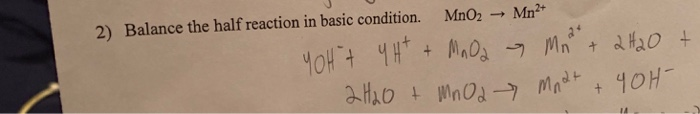 2) Balance the half reaction in basic condition. MnO₂ → Mn²⁺
4OH⁻ + 4H⁺ + MnO₂ → Mn²⁺ + 2H₂O +
2H₂O + MnO₂ → Mn²⁺ + 4OH⁻